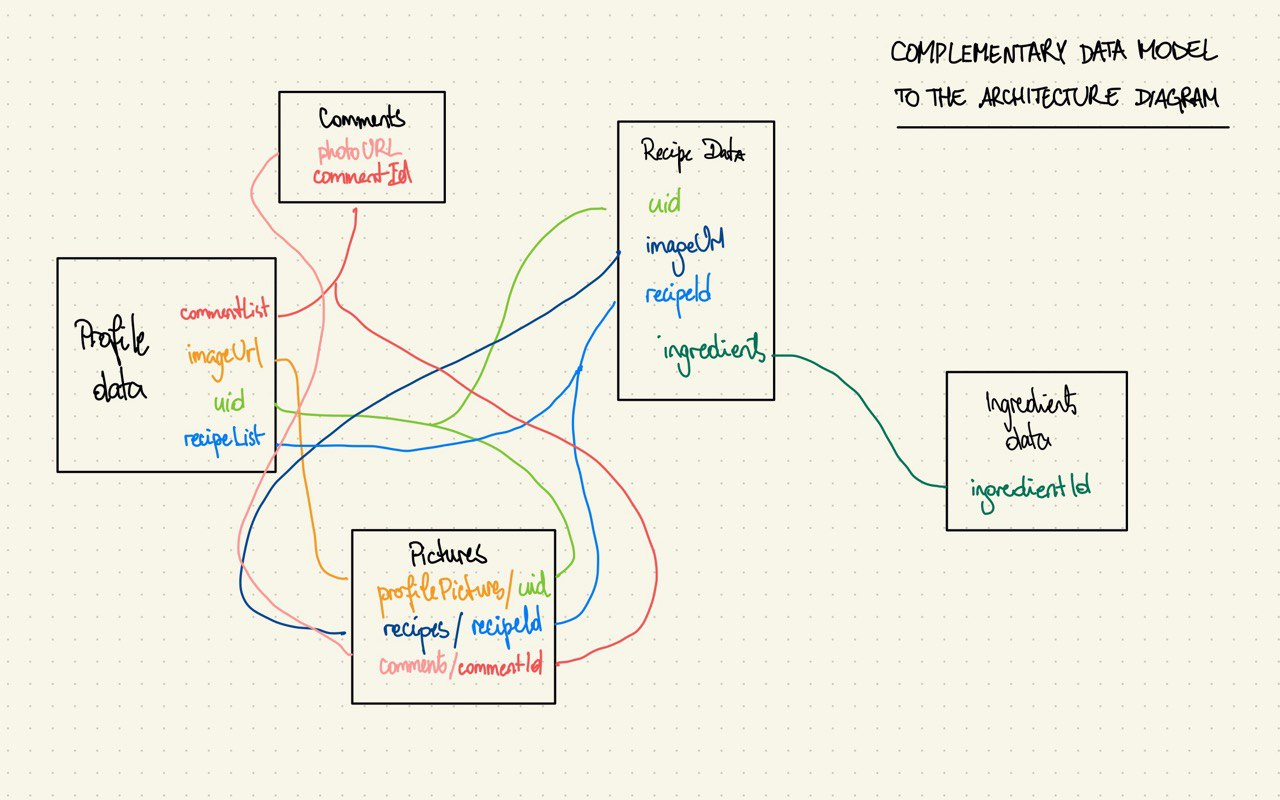 COMPLEMENTARY DATA MODEL
TO THE ARCHITECTURE DIAGRAM
Comments
photoURL
commentId
Recipe Data
uid
imageUrl
recipeId
ingredients
Profile
data
commentList
imageUrl
uid
recipeList
Ingredients
data
ingredientId
Pictures
profilePictures/uid
recipes/recipeId
comments/commentId